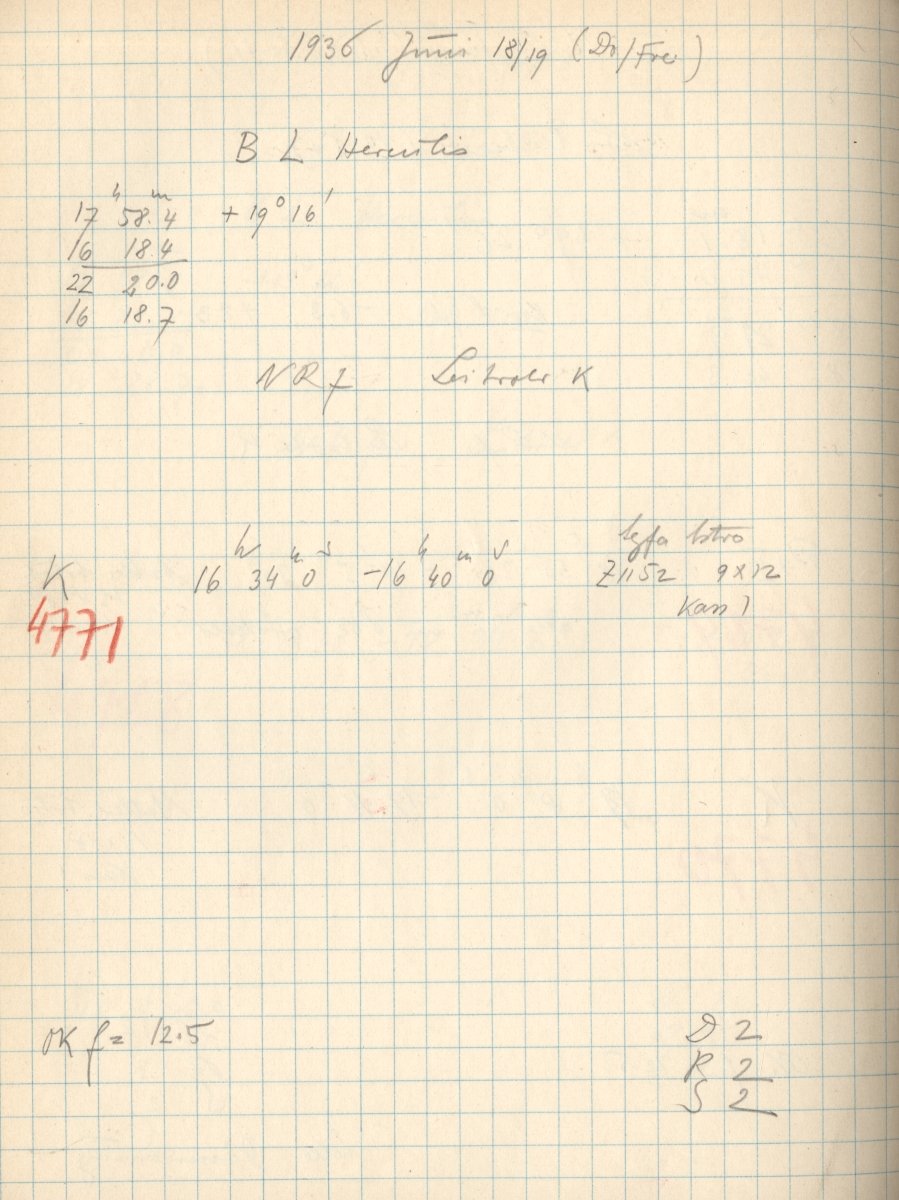 1936 Juni 18/19 (Do/Frei)
B L Herculis
17 h 58.4 m + 19° 16'
16 18.4
22 20.0
16 18.7
NR 7 Leitrohr K
K 16 h 34 m 0 s -16 h 40 m 0 s Agfa Astro
Z1152 9x12
4771 Kass 1
OK f= 12.5
D 2
R 2
S 2